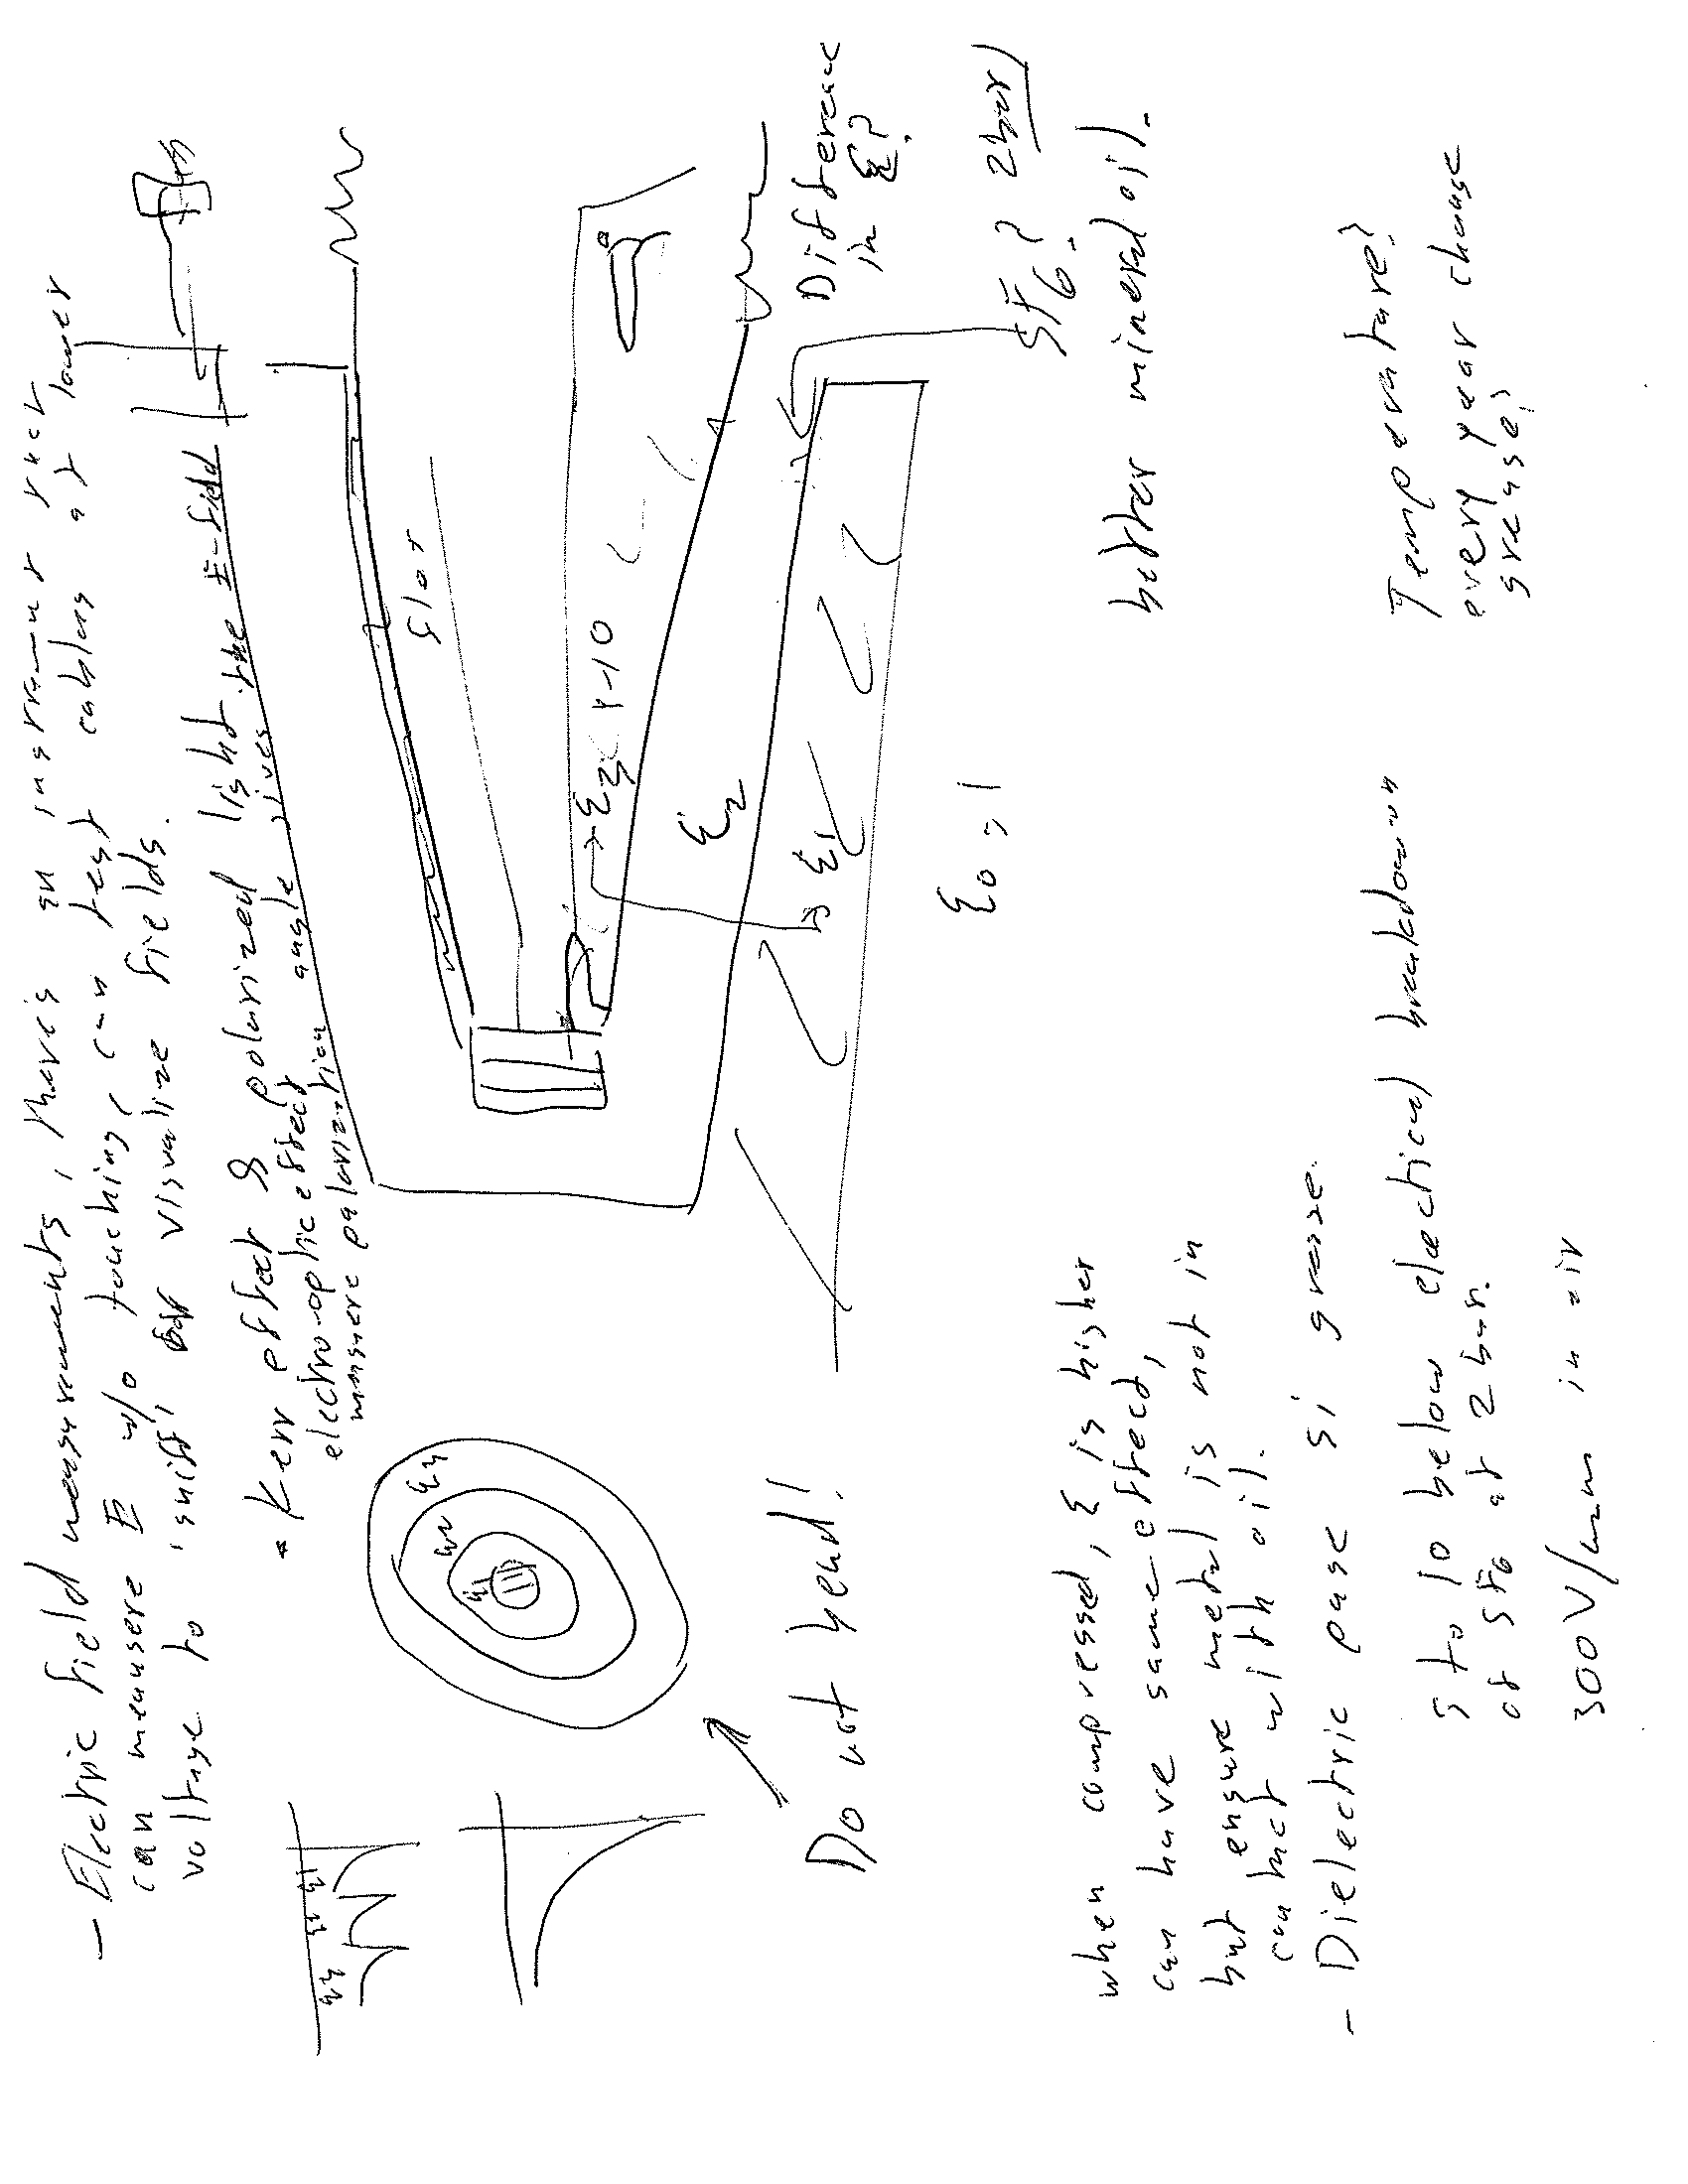 — Electric field measurements, there's an instrument that
can measure E w/o touching, can test cables at lower
voltage to 'sniff' visualize fields.
* Kerr effect & polarized light
electro-optic effect
measure polarization angle gives the E-field
slot
ε3 < 1-10
ε2
ε1
ε0 = 1
Difference
in ε?
SF6? 2 bar
better mineral oil.
ε1
ε2
ε3
ε3 ε2 ε1
Do not bend!
when compressed, ε is higher
can have same effect,
but ensure metal is not in
contact with oil.
— Dielectric paste si grease.
5 to 10 below electrical breakdown
of SF6 at 2 bar.
300V/mm in air
Temperature?
every year change
grease?